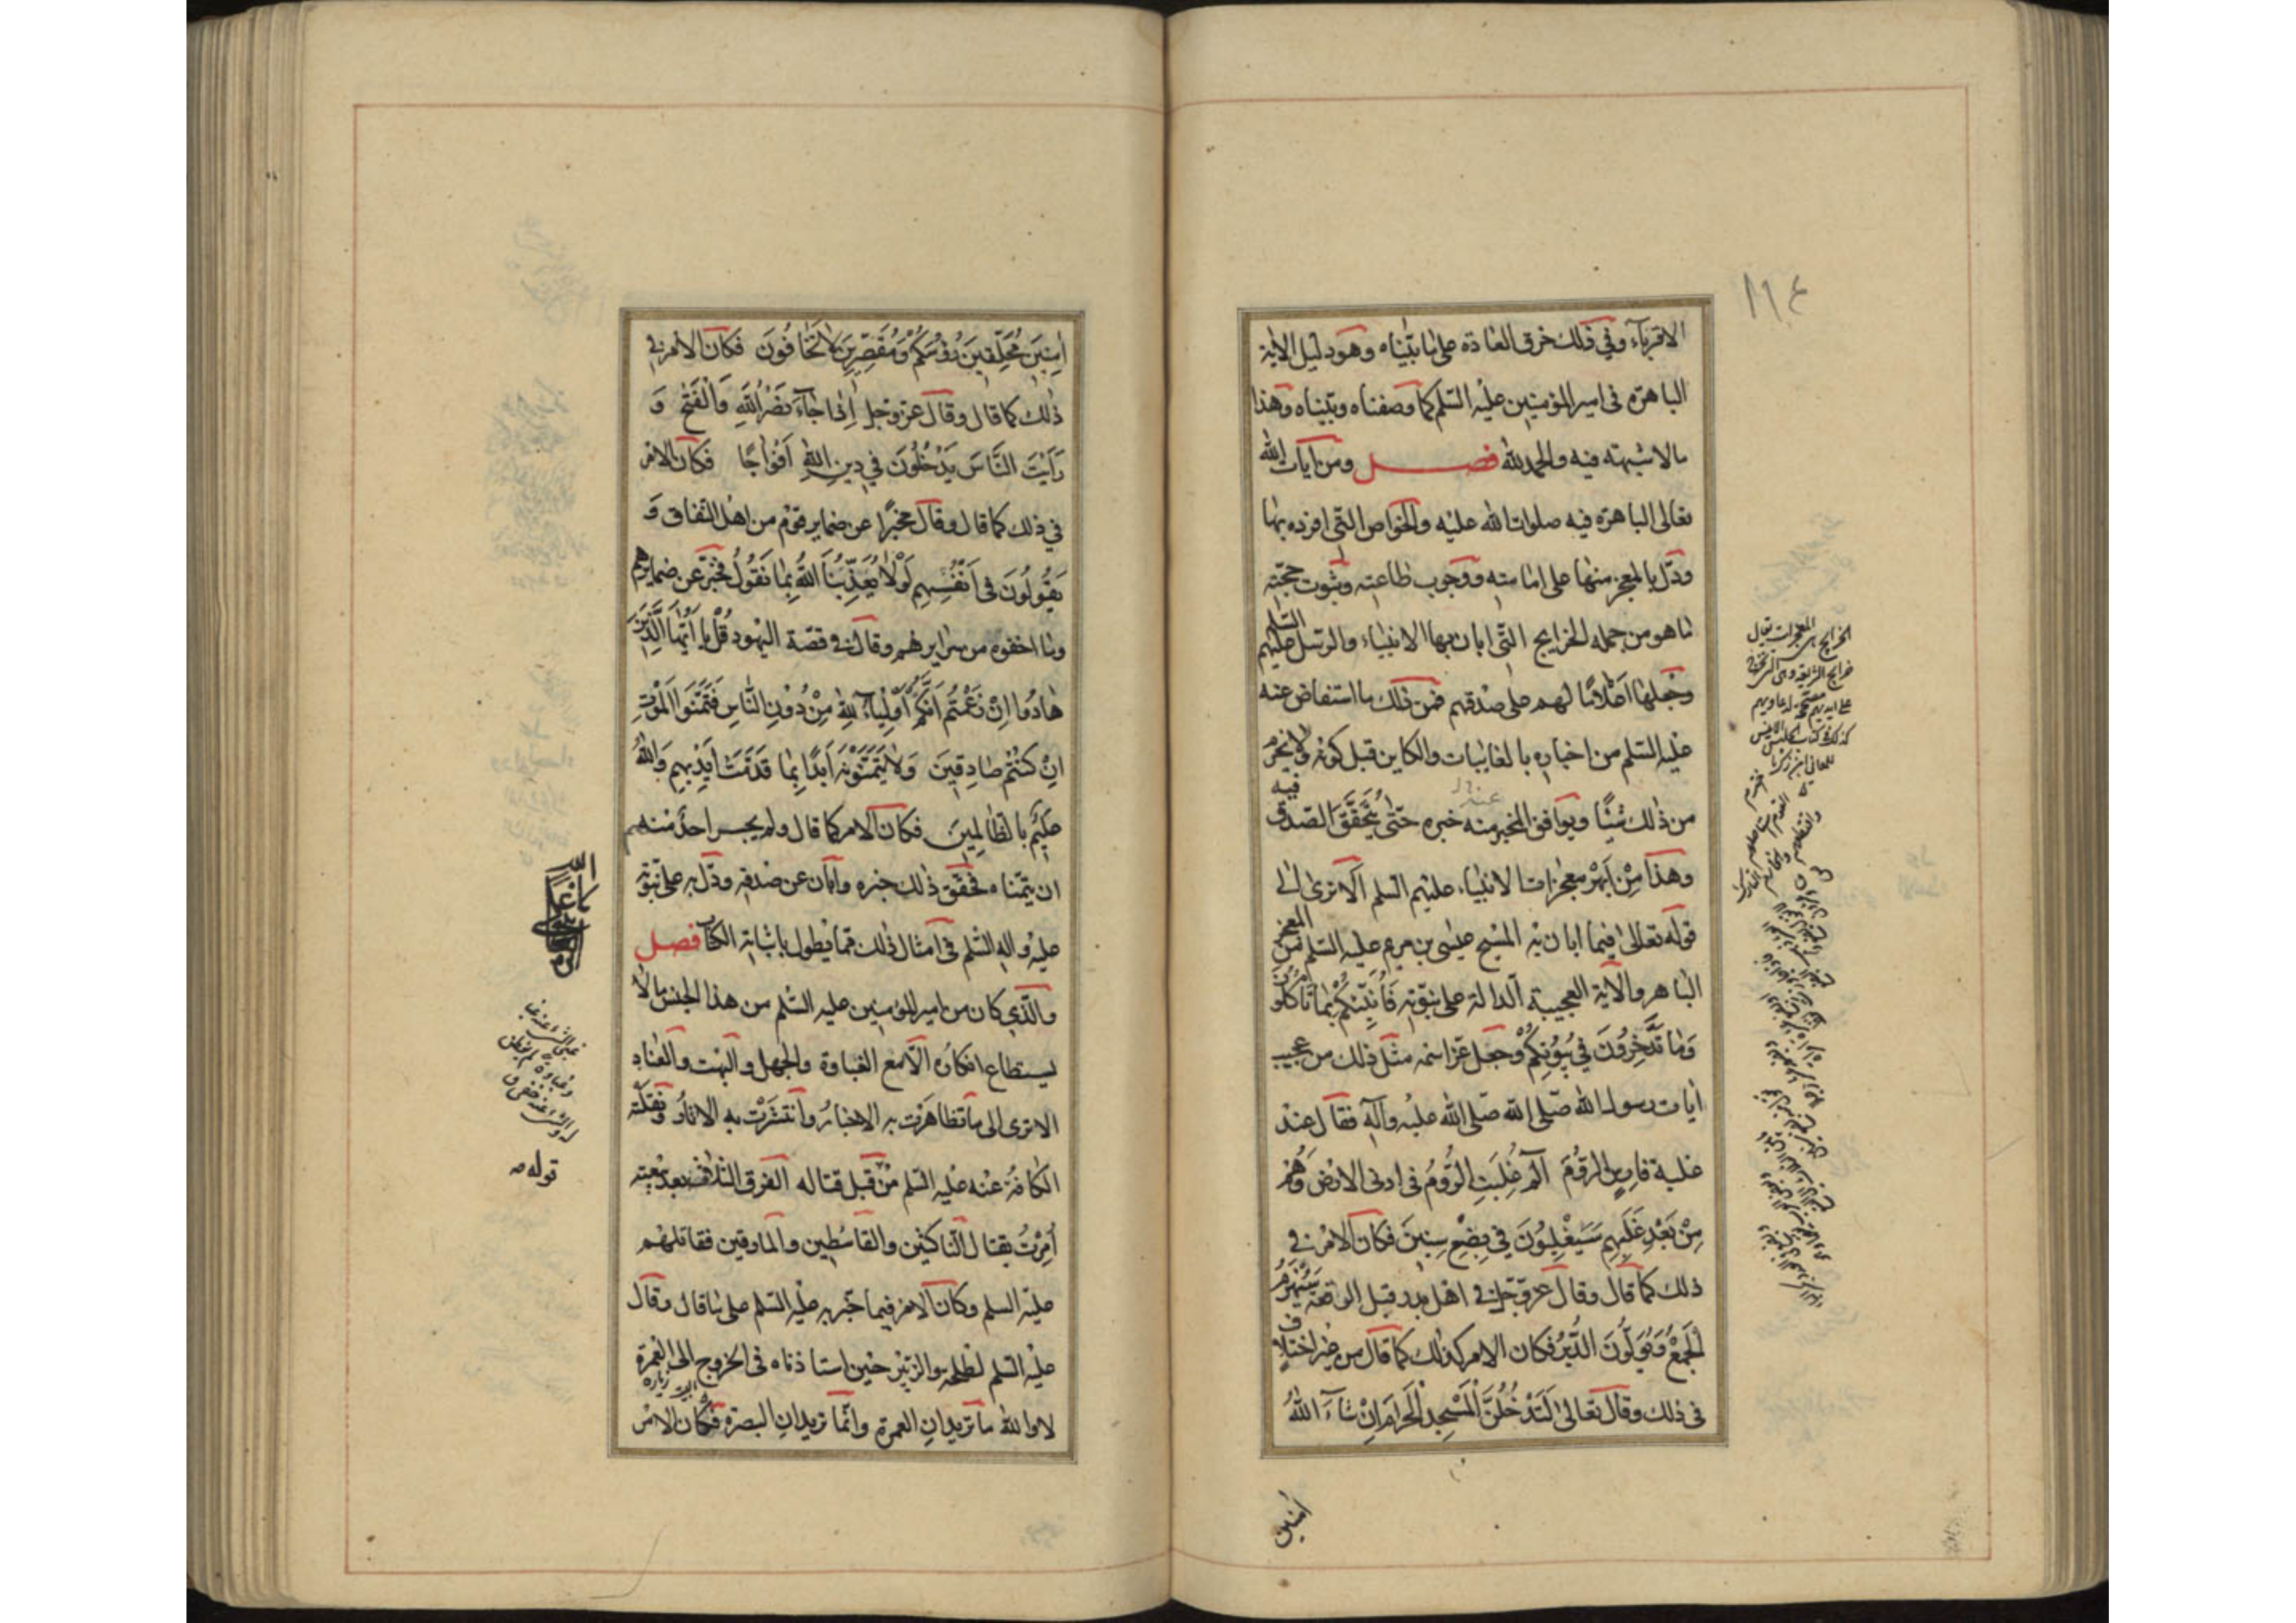 ١١٤
الاقرباء وفي ذلك خرق العادة على ما بيّناه وهو دليل الاية
الباهرة فى امير المؤمنين عليه السّلم كما وصفناه وبيّناه وهذا
مالا شبهته فيه والحمد لله فصـــل ومن ايات الله
تعالى الباهرة فيه صلوات الله عليه والخواص التي افرده بها
ودّل بالمعجز منها على امامته ووجوب طاعته وثبوت حجّته
ما هو من جمله الخرايج التّى ابان بها الانبياء والرّسل عليهم السّلم
وجعلها اعْلامًا لهم على صدقهم فمن ذلك ما استفاض عنه
عليه السّلم من اخباره بالغايبات والكاين قبل كونه ولا يخرم
من ذلك شيئًا ويوافق المخبر منه خبره حتّى يتحقّق الصّدق فيه
وهذا مِنْ اَبهَرْ معجزات الانبياء عليهم السّلم الا ترى الى
قوله تعالى فيما ابان به المسيح عيسى بن مريم عليه السّلم من المعجز
الباهر والاية العجيبة الدالة على نبوّته فَأُنَبِّئُكُمْ بِمٰا تَأكُلُونَ
وَمٰا تَدَّخِرُونَ فِي بُيُوْتِكُمْ وجعل عزّ اسمه مثل ذلك من عجيب
ايات رسول الله صّلى الله صّلى الله عليه وآله فقال عند
غلبة فارس الرّوم الم غُلِبَتِ الرُّومُ فى ادنى الارض وَهُمْ
مِنْ بَعْدِ غَلَبِهِم سَيَغْلِبُوْنَ فى بِضْعِ سِنينَ فكان الامر فى
ذلك كما قال وقال عزّ وجّل فى اهل بدر قبل الوقعة سَيُهْزَمُ
اَلْجَمْعُ وَيُوَلُّونَ الدُّبُرَ فكان الامر كذلك كما قال من غير اختلاف
فى ذلك وقال تعالى لَتَدْخُلُنَّ اَلْمَسْجِدَ الْحَرامَ اِنْ شٰاءَ اللهُ
آمنين
اٰمِنِينَ مُحَلِّقِينَ رُؤُسَكُمْ وَمُقَصِّرِينَ لاٰ تَخٰافُونَ فكان الامر فى
ذلك كما قال وقال عزّ وجل اِذٰا جٰاءَ نَصْرُ اللهِ وَالْفَتْحُ وَ
رَاَيْتَ النّٰاسَ يَدْخُلُونَ فى دِينِ اللهِ اَفْوٰاجًا فكان الامر
في ذلك كما قال وقال مخبرًا عن ضماير قوم من اهل النّفاق وَ
يَقُولُونَ فى اَنْفُسِهِم لَوْلاٰ يُعَذِّبُنَا اللهُ بِمٰا نَقُولُ فخبّر عن ضمايرهم
وما اخفوه من سرايرهم وقال فى قصّة اليهود قُلْ يٰا اَيُّهَا الَّذِينَ
هٰادُوا اِنْ زَعَمْتُمْ اَنَّكُمْ اَوْلِيٰاءُ لِلّٰهِ مِنْ دُوْنِ النّٰاسِ فَتَمَنَّوُا الْمَوْتَ
اِنْ كُنْتُمْ صٰادِقِينَ وَلاٰ يَتَمَنَّوْنَهُ اَبَدًا بِمٰا قَدَّمَتْ اَيْدِيهِمْ وَاللهُ
عَلِيمٌ بِالظّٰالِمِينَ فكان الامر كما قال ولم يجسر احدٌ منهم
ان يتمنّاه فحقّق ذلك خبره وابان عن صدقه ودّل به على نبوّته
عليه واله السّلم فى امثال ذلك ممّا يطول باثباته الكتاب فصـل
والّذي كان من امير المؤمنين عليه السّلم من هذا الجنس مالا
يستطاع انكاره الّا مع الغباوة والجهل والبهت والعناد
الا ترى الى ما تظاهرت به الاخبارُ وانتشرت به الاثارُ ونقلته
الكافة عنه عليه السّلم مِنْ قبل قتاله الفرق الثلاث بعد بيعته
اُمِرْتُ بقتال النّاكثين والقاسطين والمارقين فقاتلهم
عليه السلم وكان الامر فيما خبّر به عليْه السّلم على ما قال وقال
عليْه السّلم لطلحه والزبيْر حيْن استاذناه فى الخروج الى العمرة
لا والله ما تريدان العمرة وانّما تريدان البصرة فكان الامْر